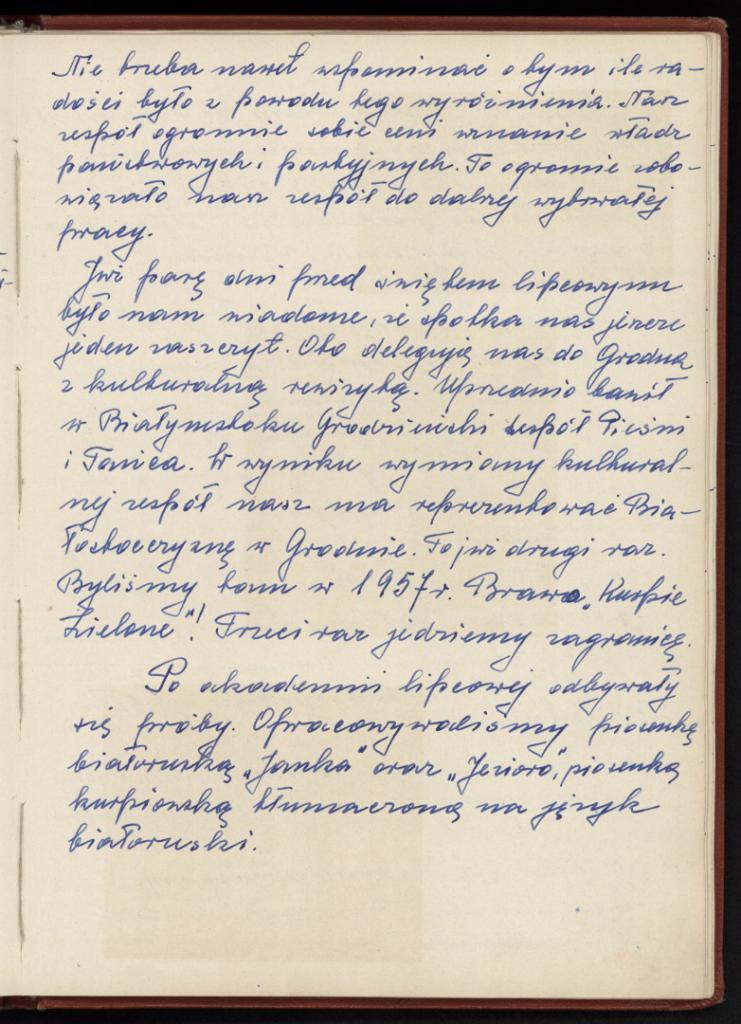 Nie trzeba nawet wspominać o tym ile ra-
dości było z powodu tego wyróżnienia. Nasz
zespół ogromnie sobie ceni uznanie władz
państwowych i partyjnych. To ogromie zobo-
wiązało nasz zespół do dalszej wytrwałej
pracy.
Już parę dni przed świętem lipcowym
było nam wiadome, że spotka nas jeszcze
jeden zaszczyt. Oto delegują nas do Grodna
z kulturalną rewizytą. Uprzednio bawił
w Białymstoku Grodzieński zespół Pieśni
i Tańca. W wyniku wymiany kultural-
nej zespół nasz ma reprezentować Bia-
łostocczyznę w Grodnie. To już drugi raz.
Byliśmy tam w 1957 r. Brawo „Kurpie
Zielone"! Trzeci raz jedziemy zagranicę.
Po akademii lipcowej odbywały
się próby. Opracowywaliśmy piosenkę
białoruską „Janka" oraz „Jezioro", piosenką
kurpiowską tłumaczoną na język
białoruski.